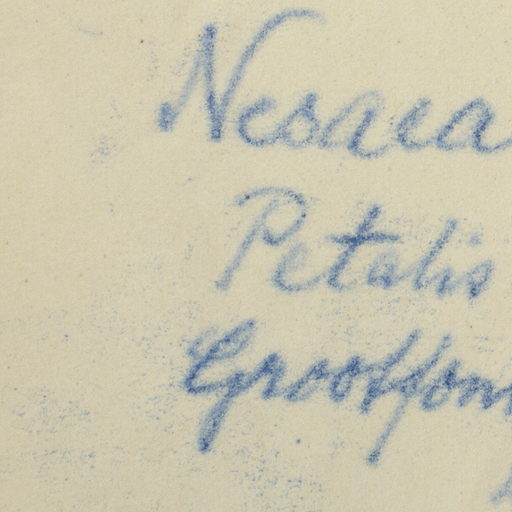 Nesaea
Petalis
Grootfon